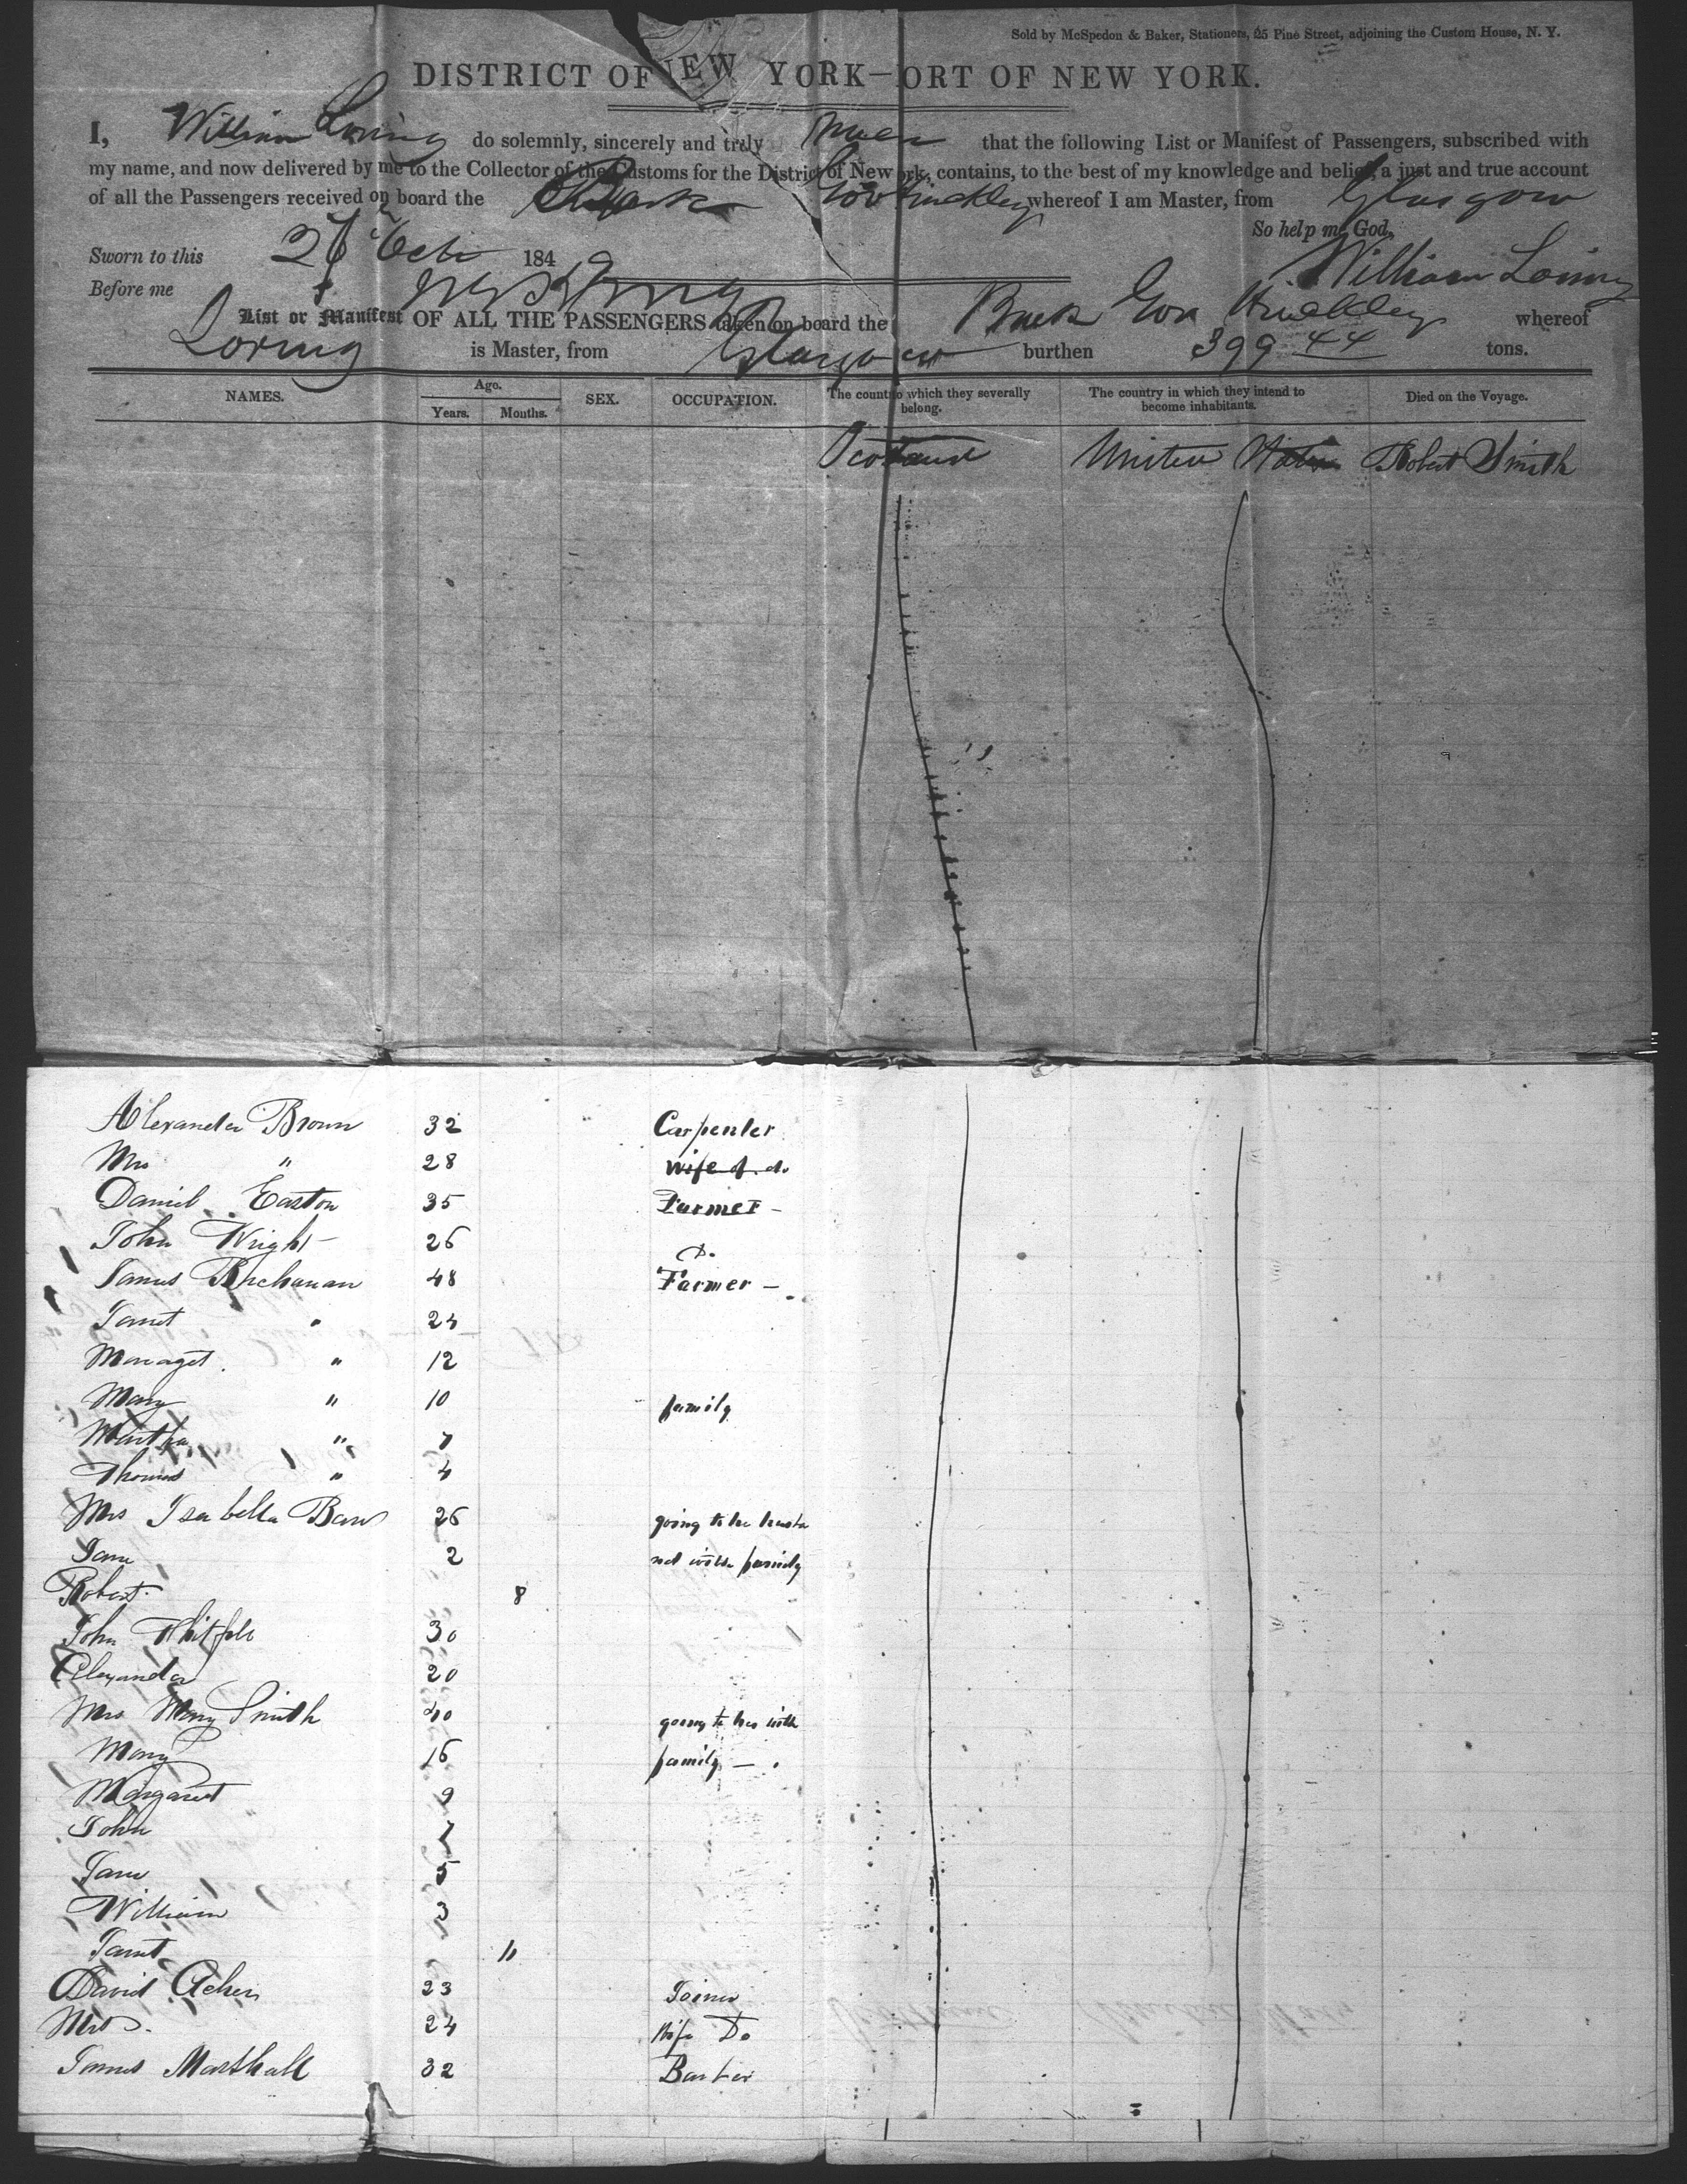 Sold by McSpedon & Baker, Stationers, 25 Pine Street, adjoining the Custom House, N. Y.
DISTRICT OF NEW YORK—ORT OF NEW YORK.
I, William Loring do solemnly, sincerely and truly swear that the following List or Manifest of Passengers, subscribed with
my name, and now delivered by me to the Collector of the Customs for the District of New ork, contains, to the best of my knowledge and belief, a just and true account
of all the Passengers received on board the Bark Gov Hinckley whereof I am Master, from Glasgow
So help me God,
Sworn to this 26 Octr 1849 William Loring
Before me
List or Manifest OF ALL THE PASSENGERS taken on board the Bark Gov Hinckley whereof
Loring is Master, from Glasgow burthen 399 44 tons.
NAMES. Age. Years. Months. SEX. OCCUPATION. The count o which they severally belong. The country in which they intend to become inhabitants. Died on the Voyage.
Scotland United States Robert Smith
Alexander Brown 32 Carpenter
Mrs " 28 wife of do
Daniel Easton 35 Farmer -
John Wright 26 Do
James Buchanan 48 Farmer -
Janet " 24
Margaget " 12
Mary " 10 family
Martha " 7
Thomas " 4
Mrs Isabella Barr 26 going to her husba
Jane 2 nd with family
Robert 8
John 30
Alexander 20
Mrs Mary Smith 40 going to her with
Mary 16 family -
Margaret 9
John 7
Jane 5
William 3
Janet 11
David Acken 23 Joiner
Mrs 24 Wife Do
James Marshall 32 Barber